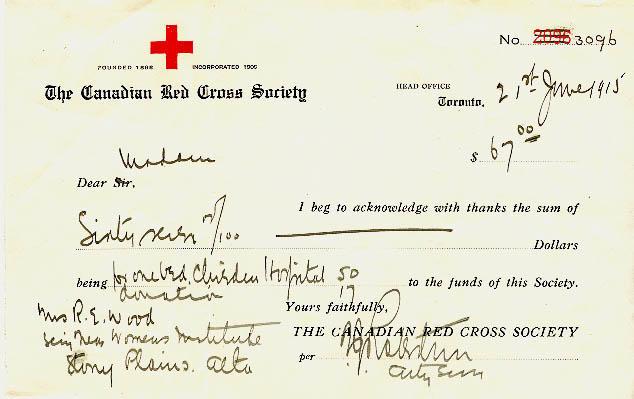 No. 2096 3096
FOUNDED 1896 INCORPORATED 1909
The Canadian Red Cross Society
HEAD OFFICE
Toronto, 21st June 1915
$ 67 00
Madam
Dear Sir,
I beg to acknowledge with thanks the sum of
Sixty seven /100 Dollars
being for one bed Hospital 50 to the funds of this Society.
donation 17
Yours faithfully,
Mrs R. E. Wood
THE CANADIAN RED CROSS SOCIETY
Women's Institute
per
Stony Plains. Alta